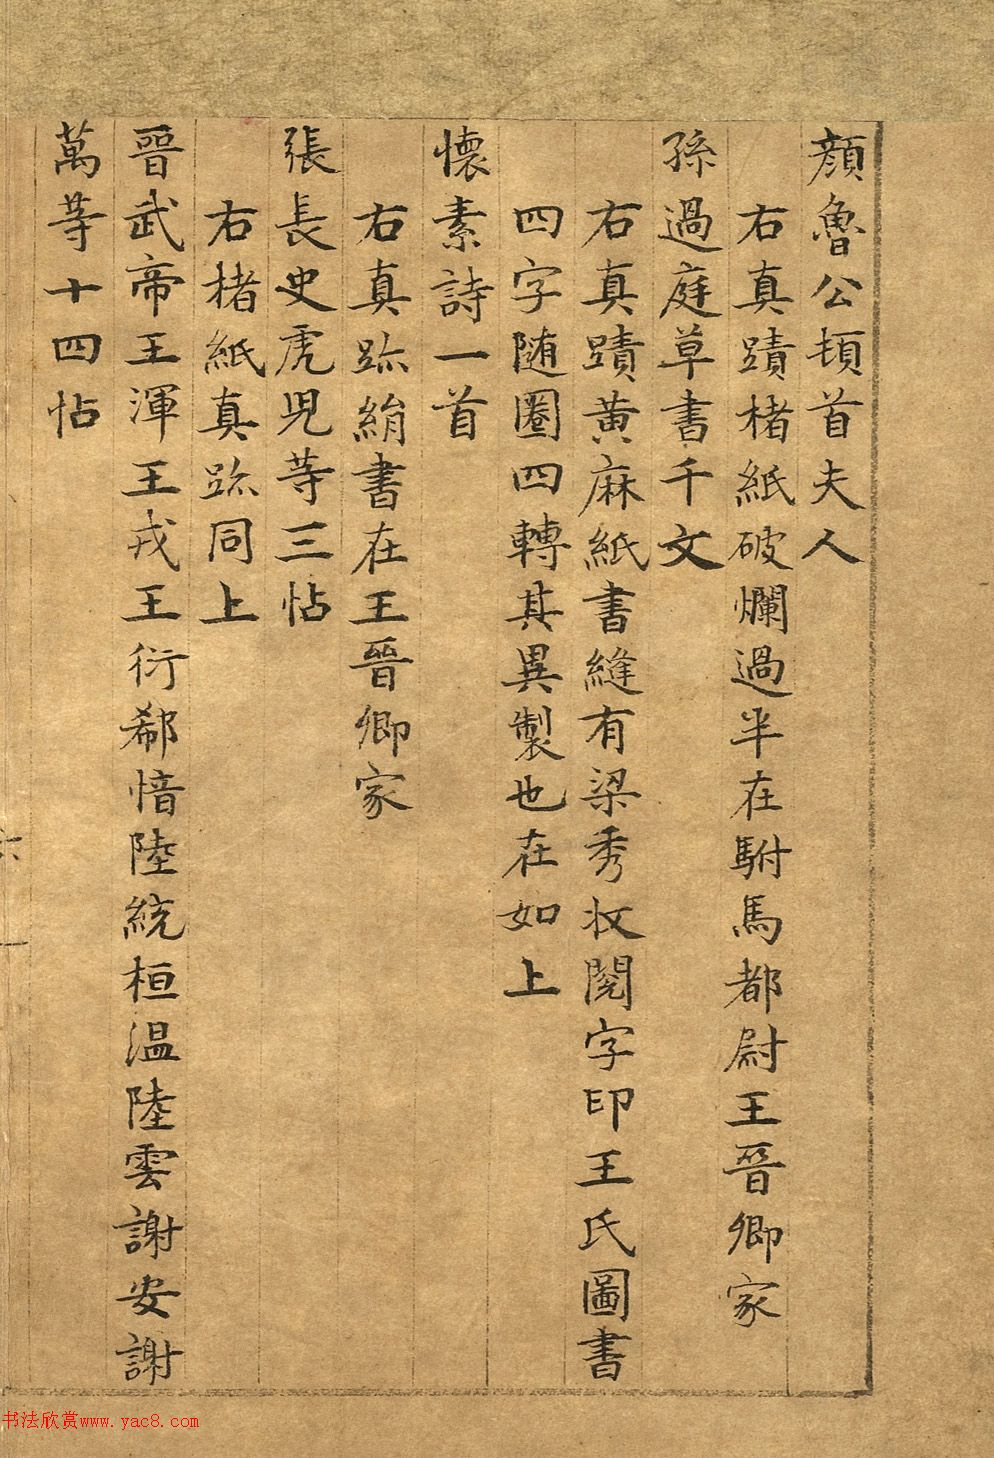 顔魯公頓首夫人
右真蹟楮紙破爛過半在駙馬都尉王晉卿家
孫過庭草書千文
右真蹟黄麻紙書縫有梁秀收閱字印王氏圖書
四字随圈四轉其異製也在如上
懷素詩一首
右真跡絹書在王晉卿家
張長史虎兒等三帖
右楮紙真跡同上
晉武帝王渾王戎王衍郗愔陸統桓温陸雲謝安謝
萬等十四帖
书法欣赏www.yac8.com